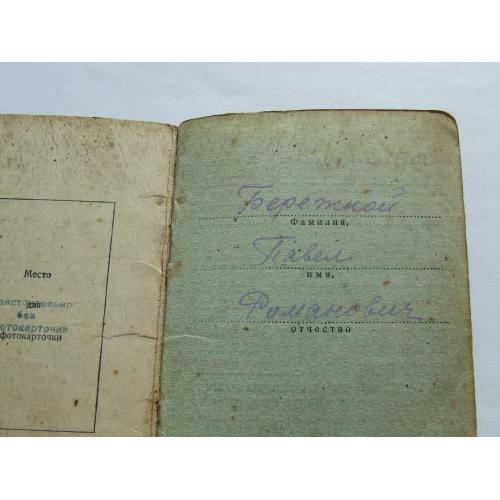 Место
для
действительно
без
фотокарточки
фотокарточки
Бережной
Фамилия,
Павел
имя,
Романович
отчество